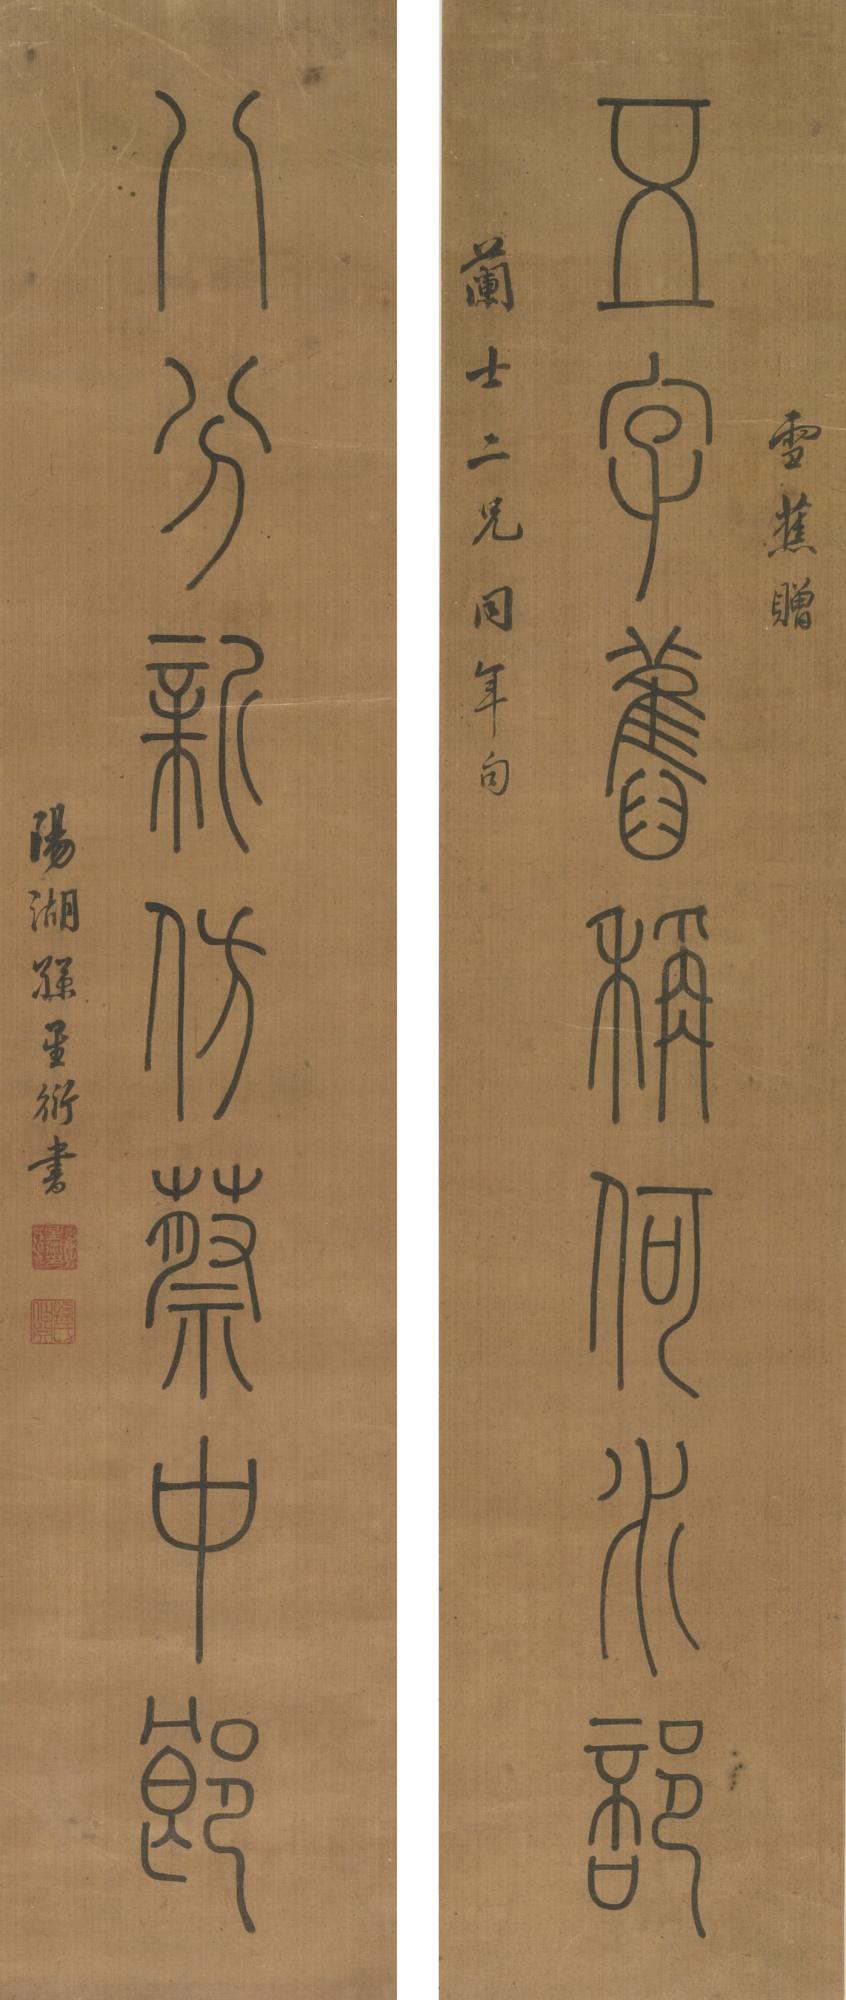 五字舊稱何水部
雪蕉贈
蘭士二兄同年句
八分新仿蔡中郎
陽湖孫星衍書